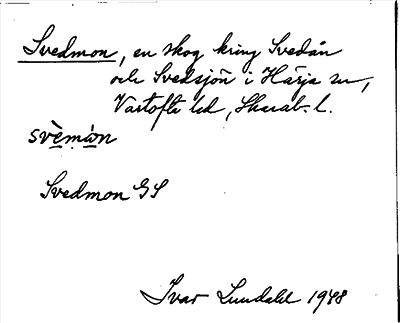 Svedmon, en skog kring Svedån
och Svedsjön i Härja sn,
Vartofta hd, Skarab. l.
svèmòn
Svedmon GS
Ivar Lundahl 1948